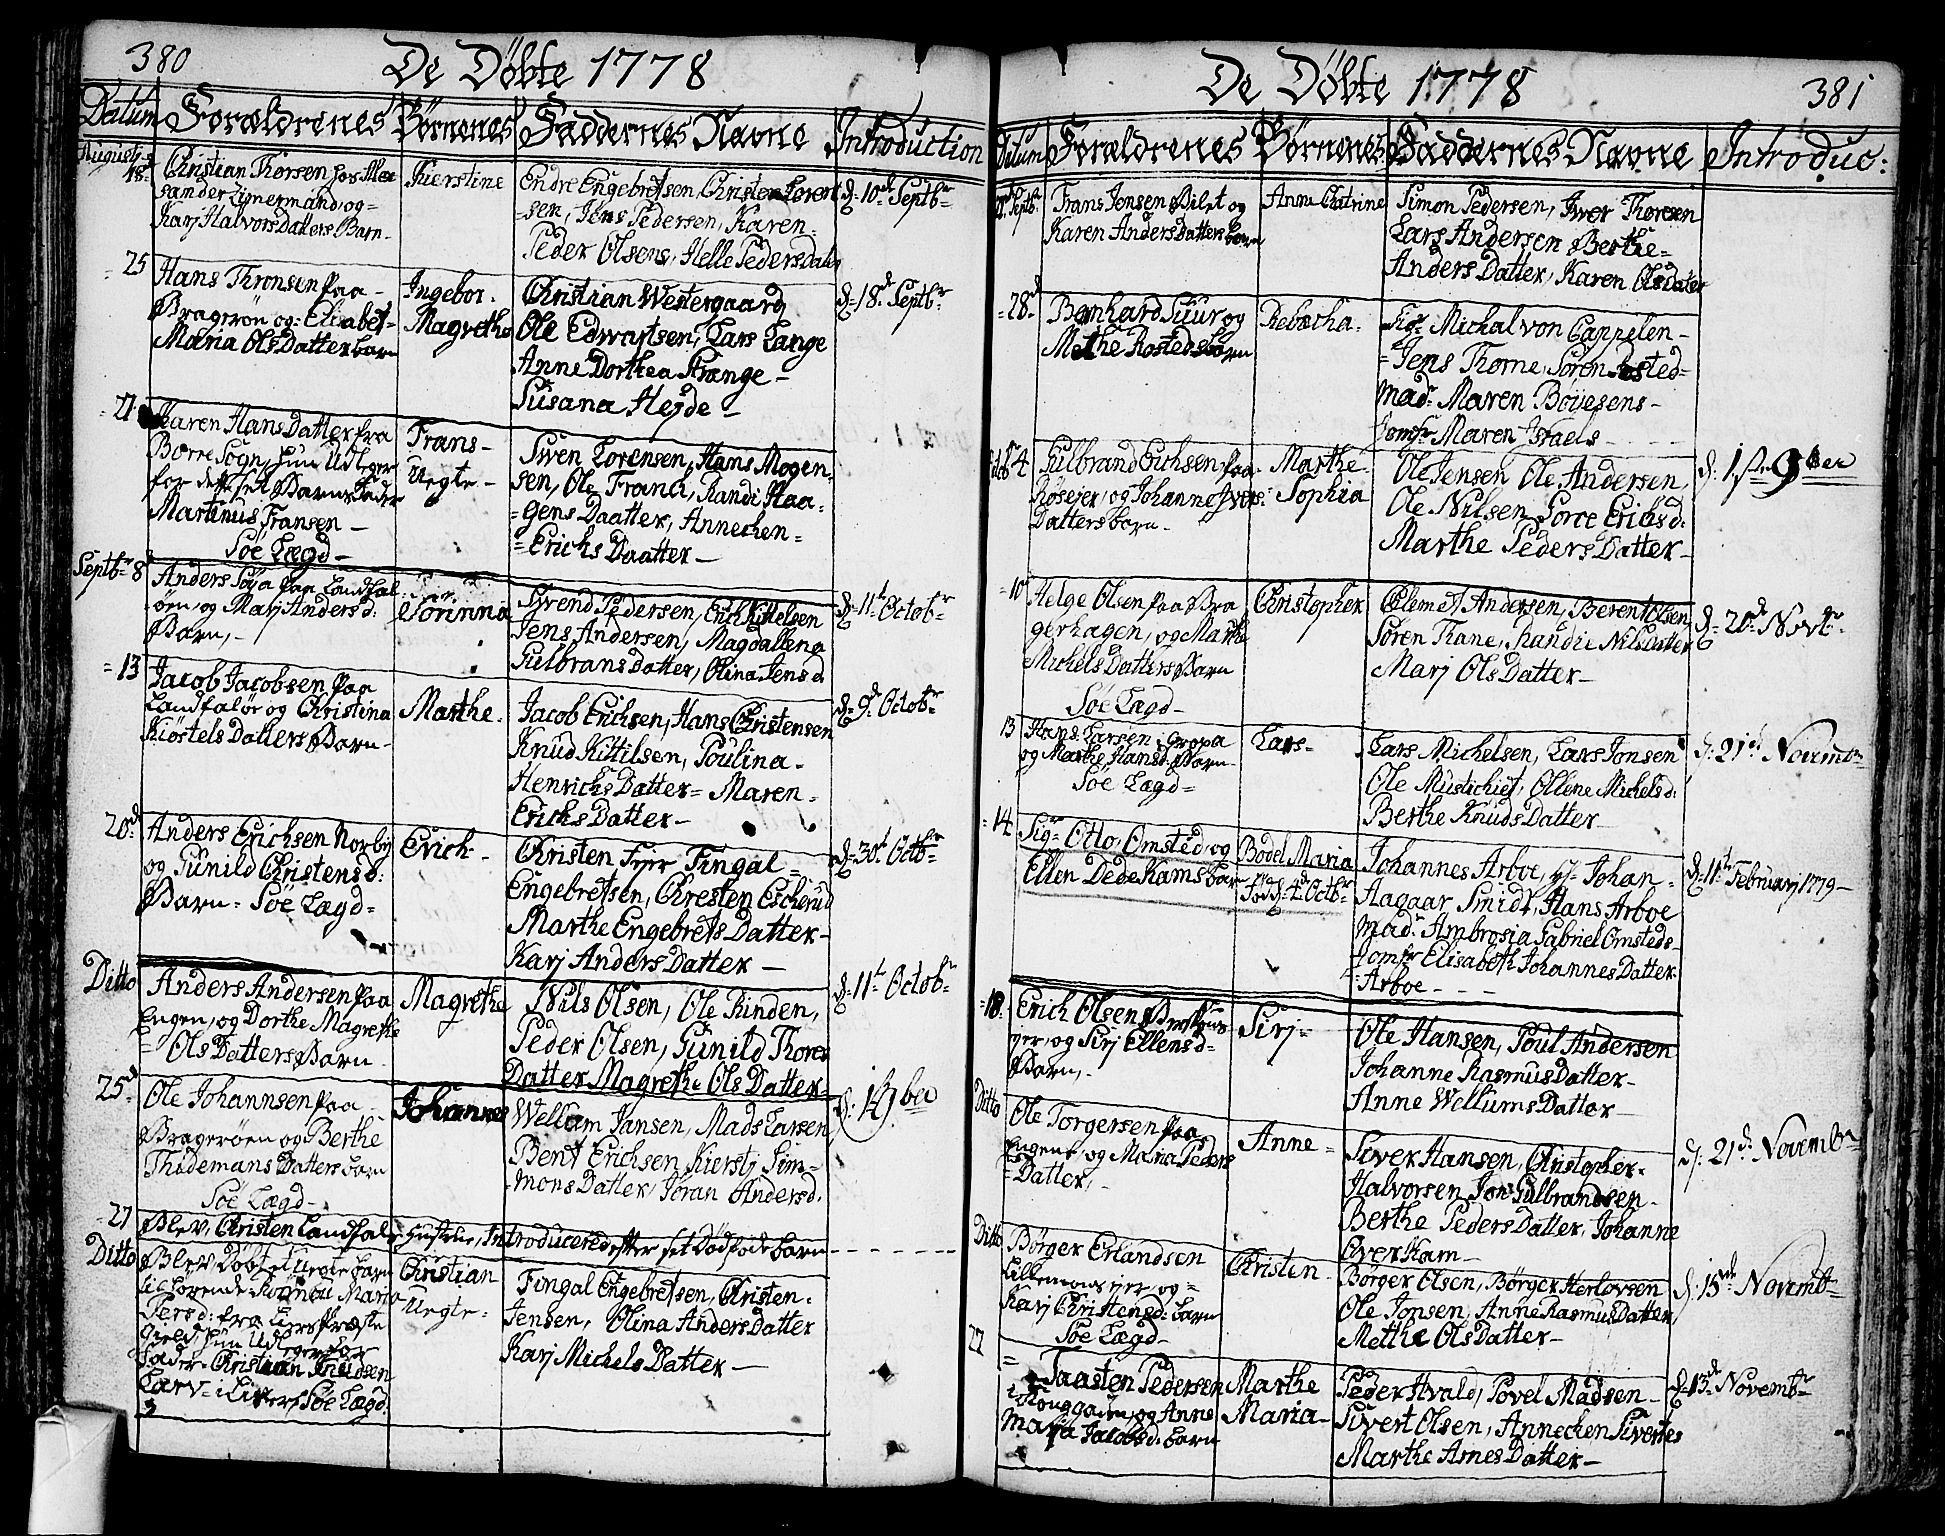 380
De Døbte 1778
Datum Forældrenes Børnenes Faddernes Navne Introduction
August
18. Christian Thorsen hos Alex
sander Zimermand, og
Karj HalvorsDatters Barn
Kierstine
Endre Engebretsen, Christen Loren
sen, Jens Pedersen, Karen
Peder Olsens, Helle PedersDatter
d. 10de Septbr
25 Hans Thronsen paa
Bragerøn og Elisabet
Maria OlsDatter barn
Ingebor
Magrethe
Christian Westergaard
Ole Edwartsen, Lars Lange
Anne Dorthea Prænge
Susana Hejde
d. 18d Septbr
27 Karen HansDatter fra
Borre Sogn, hun Udlegger
for dette sit Barns Fader
Martinus Fransen
Søe Lægd
Frans
Uegte
Swen Lorensen, Hans Mogen
sen, Ole Franci, Randi Haa
gens Daatter, Annechen
Erichs Daatter
Septbr 8 Anders Søya paa Landfal
øen, og Marj Andersd:
Barn,
Sørinna
Svend Pedersen, Erich Kittelsen
Jens Andersen, Magdallena
GulbransDatter, Olina Jensd.
d. 11te Octobr
13 Jacob Jacobsen paa
Landfalør og Christina
Kiøstels Datters Barn
Marthe
Jacob Erichsen, Hans Christensen
Knud Kittilsen, Poulina
Henrichs Datter Maren
Erichs Datter
d. 9de Octobr
20d Anders Erichsen Norby
og Gunild Christensd:
Barn Søe Lægd
Erich
Christen Fyer Fingal
Engebretsen, Christen Escherud
Marthe Engebrets Datter
Karj Anders Datter
d. 30t Octbr
Ditto Anders Andersen paa
Engen, og Dorthe Magrethe
Ols Datters Barn
Magrethe
Nils Olsen, Ole Rinden,
Peder Olsen, Gunild Thores
Datter Magrethe Ols Datter
d. 11t Octobr
25d Ole Johannsen paa
Bragerøen og Berthe
Thidemans Datters barn
Søe Lægd
Johannes
Wellam Jansen, Mads Larsen
Bent Erichsen Kierstj Sim
monsDatter, Jøran Andersd.
27 Blev Christen Landfals Hustrue, Introduceret efter sit Dødføde barn
Ditto Blev Døbt et Uegte barn
Maria
Persd: fra Liers Præste
Gield, hun Udlegger for
Fader Christian Knudsen
Larv i Lier, Søe Lægd
Christian
Uegte
Fingal Engebretsen, Christen
Jensen, Olina AndersDatter
Karj Michels Datter
381
De Døbte 1778
Datum Forældrenes Børnenes Faddernes Navne Introduc:
Septbr Frans Jonsen Bilet og
Karen AndersDatters barn
Anne Chatrine
Simon Pedersen, Iwer Thoresen
Lars Andersen Berthe
Anders Datter, Karen OlsDatter
28d Bernhard Suur og
Mette Rosteds barn
Rebecha
Sigr Michal von Cappelen
Jens Thorne, Søren Rosted
Madr Maren Boyesens
Jomfr Maren Israels
Octob 4 Gulbrand Erichsen paa
Røsejer, og Johanne Ivers
Datters barn
Marthe
Sophia
Ole Jensen Ole Andersen,
Ole Nilsen Sorre Erichsd:
Marthe Peders Datter
d. 1ste 9ber
10 Helge Olsen paa Bra
gerhagen, og Marthe
Michels Datters Barn
Søe Lægd
Christopher
Clemet Andersen, Berent Olsen
Søren Thane, Randie NilsDatter
Marj Ols Datter
d. 20de Novbr
13 Hans Larsen i Gropa
og Marthe Hansd: Barn
Søe Lægd
Lars
Lars Michelsen, Lars Jonsen
Ole Mustichiet, Ollene Michelsd:
Berthe Knuds Datter
d. 21de Novembr
14 Sigr Otto Omsted, og
Ellen Dedekams barn
Bodel Maria
Fødd: 4d Octbr
Johannes Arboe, Johan
Aagaar Smidt, Hans Arboe
Madr Ambrosia Gabriel Omsteds
Jomfr Elisabeth Johannes Datter
Arboe
d. 11te Februarj 1779
18. Erich Olsen
og Sirj Ellensd
Barn,
Sirj
Ole Hansen, Poul Andersen
Johanne Rasmus Datter
Anne Wellums Datter
Ditto Ole Torgersen paa
Engene, og Maria Peders
Datter,
Anne
Siver Hansen, Christopher
Halvorsen Jon Gulbrandsen
Berthe Peders Datter, Johanne
Over Ham
d. 21d. Novembr
Ditto Børger Erlandsen
Lillemons ejer, og
Karj Christensd: barn
Søe Lægd
Christen
Børger Olsen, Børger Herlovsen
Ole Jonsen, Anne Rasmus Datter,
Metthe Ols Datter
d. 15de Novembr
27 Taasten Pedersen
og Anne
Marja Jacobsd: barn
Marthe
Maria
Peder Hvald, Povel Madsen
Sivert Olsen, Annechen Siverts
Marthe Arnes Datter
d. 13d Novembr